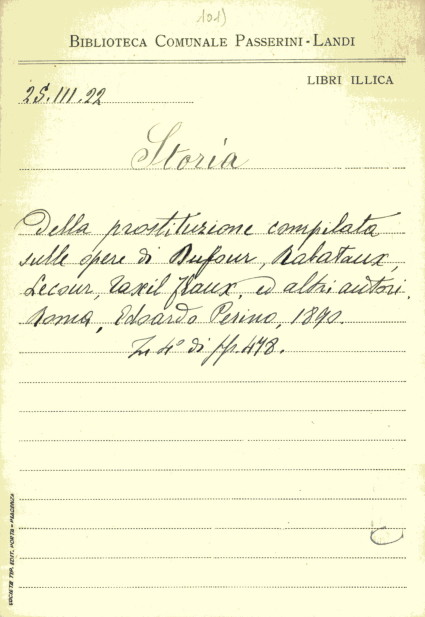 101)
BIBLIOTECA COMUNALE PASSERINI-LANDI
LIBRI ILLICA
25.III.22
Storia
Della prostituzione compilata
sulle opere di Dufour, Rabataux,
Lecour, Taxil Flaux, ed altri autori.
Roma, Edoardo Perino, 1890.
In 4° di pp. 478.
SOCIETÀ TIP. EDIT. PORTA - PIACENZA